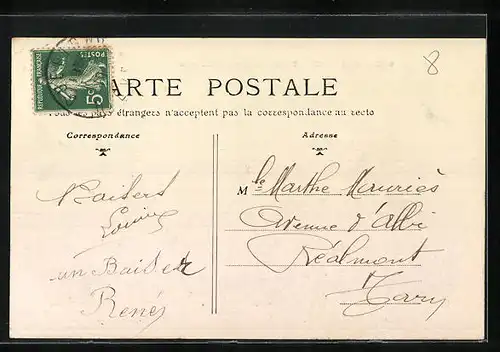 8
POSTES
REPUBLIQUE FRANÇAISE
5c
CARTE POSTALE
Tous les pays étrangers n'acceptent pas la correspondance au recto
Correspondance
Adresse
Baisers
Louise
un Baiser
René
Mlle Marthe Mauriès
Avenue d'Albi
Réalmont
Tarn